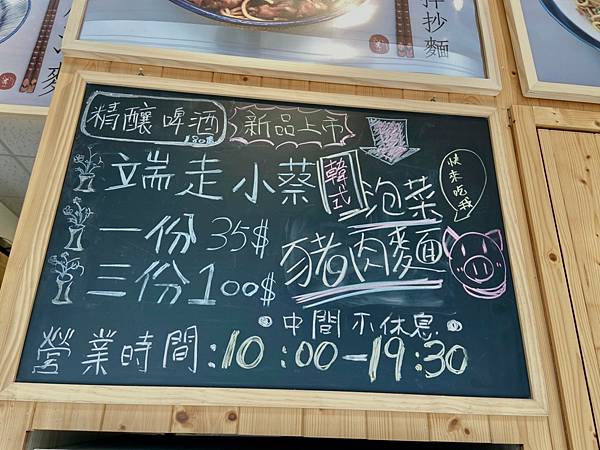 拌抄麵
精釀啤酒
180元
新品上市
端走小蔡
一份 35$
三份100$
韓式
泡菜
豬肉麵
快來吃我
中間不休息
營業時間:10:00-19:30